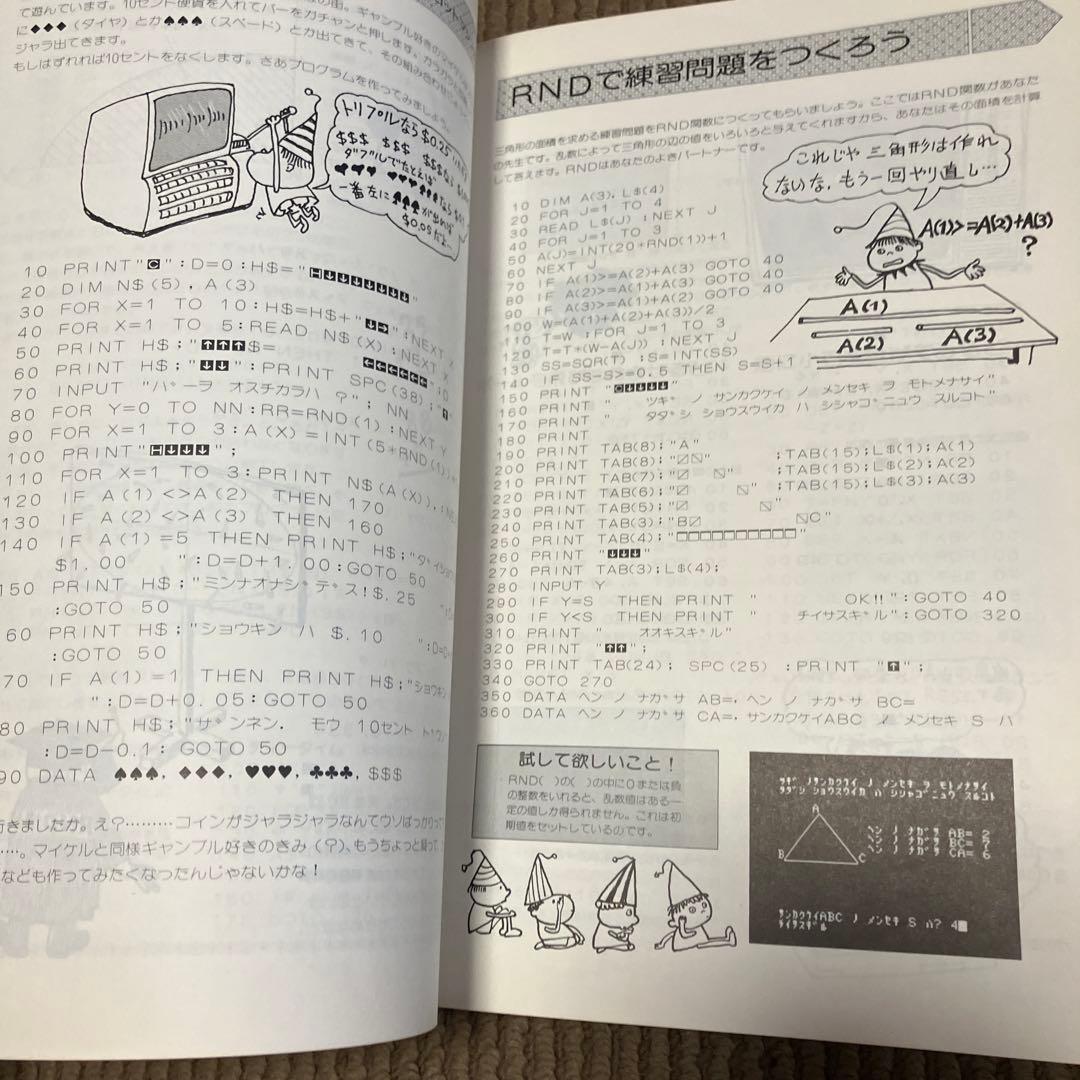 て遊んでいます。10セント硬貨を入れてバーをガチャンと押します。ガラガラと
に◆◆◆(ダイヤ)とか♠♠♠(スペード)とか出てきて、その組み合わせ
ジャラ出てきます。
もしはずれれば10セントをなくします。さあプログラムを作ってみましょう。
トリプルなら$0.25
$$$ $$$ $$$
ダブルでたとえば
一番左に♠♠♠が出れば
$0.05だよ
10 PRINT"C":D=0:H$="H↓↓↓↓↓↓↓↓"
20 DIM N$(5),A(3)
30 FOR X=1 TO 10:H$=H$+"↓→":NEXT X
40 FOR X=1 TO 5:READ N$(X):NEXT X
50 PRINT H$;"↑↑↑$=
60 PRINT H$;"↓↓":PRINT SPC(38);"↑
70 INPUT "バーヲ オスチカラハ ?"; NN
80 FOR Y=0 TO NN:RR=RND(1):NEXT Y
90 FOR X=1 TO 3:A(X)=INT(5*RND(1))+
100 PRINT"H↓↓↓";
110 FOR X=1 TO 3:PRINT N$(A(X)),:NE
120 IF A(1)<>A(2) THEN 170
130 IF A(2)<>A(3) THEN 160
140 IF A(1)=5 THEN PRINT H$;"ダイショウ
$1.00 ":D=D+1.00:GOTO 50
150 PRINT H$;"ミンナオナシ゛デス!$.25
:GOTO 50
60 PRINT H$;"ショウキン ハ $.10 ":D=D
:GOTO 50
70 IF A(1)=1 THEN PRINT H$;"ショウキン
":D=D+0.05:GOTO 50
80 PRINT H$;"サ゛ンネン. モウ 10セント
:D=D-0.1: GOTO 50
90 DATA ♠♠♠,◆◆◆,♥♥♥,♣♣♣,$$$
行きましたか。え?………コインがジャラジャラなんてウソばっかりって
…。マイケルと同様ギャンブル好きのきみ(?)、もうちょっと凝って、
なども作ってみたくなったんじゃないかな!
RNDで練習問題をつくろう
三角形の面積を求める練習問題をRND関数につくってもらいましょう。ここではRND関数があなた
の先生です。乱数によって三角形の辺の値をいろいろと与えてくれますから、あなたはその面積を計算
して答えます。RNDはあなたのよきパートナーです。
これじゃ三角形は作れ
ないな、もう一回やり直し…
A(1)>=A(2)+A(3)
?
A(1)
A(2)
A(3)
10 DIM A(3),L$(4)
20 FOR J=1 TO 4
30 READ L$(J) :NEXT J
40 FOR J=1 TO 3
50 A(J)=INT(20*RND(1))+1
60 NEXT J
70 IF A(1)>=A(2)+A(3) GOTO 40
80 IF A(2)>=A(1)+A(3) GOTO 40
90 IF A(3)>=A(1)+A(2) GOTO 40
100 W=(A(1)+A(2)+A(3))/2
110 T=W :FOR J=1 TO 3
120 T=T*(W-A(J)) :NEXT J
130 SS=SQR(T) :S=INT(SS)
140 IF SS-S>=0.5 THEN S=S+1
150 PRINT "C↓↓↓↓↓"
160 PRINT " ツキ゛ ノ サンカクケイ ノ メンセキ ヲ モトメナサイ"
170 PRINT " タタ゛シ ショウスウイカ ハ シシャコ゛ニュウ スルコト"
180 PRINT
190 PRINT TAB(8);"A"
200 PRINT TAB(8);"◸◹" ;TAB(15);L$(1);A(1)
210 PRINT TAB(7);"◸ ◹" ;TAB(15);L$(2);A(2)
220 PRINT TAB(6);"◸ ◹" ;TAB(15);L$(3);A(3)
230 PRINT TAB(5);"◸ ◹"
240 PRINT TAB(3);"B◸ ◹C"
250 PRINT TAB(4);"□□□□□□□□□□"
260 PRINT "↓↓↓"
270 PRINT TAB(3);L$(4);
280 INPUT Y
290 IF Y=S THEN PRINT " OK!!":GOTO 40
300 IF Y<S THEN PRINT " チイサスキ゛ル":GOTO 320
310 PRINT " オオキスキ゛ル"
320 PRINT "↑↑";
330 PRINT TAB(24); SPC(25) :PRINT "↑";
340 GOTO 270
350 DATA ヘン ノ ナカ゛サ AB=,ヘン ノ ナカ゛サ BC=
360 DATA ヘン ノ ナカ゛サ CA=,サンカクケイABC ノ メンセキ S ハ
試して欲しいこと!
RND( )の( )の中に0または負
の整数をいれると、乱数値はある一
定の値しか得られません。これは初
期値をセットしているのです。
ツキ゛ ノサンカクケイ ノ メンセキ ヲ モトメナサイ
タタ゛シ ショウスウイカ ハ シシャコ゛ニュウ スルコト
A
ヘン ノ ナカ゛サ AB= 2
ヘン ノ ナカ゛サ BC= 7
ヘン ノ ナカ゛サ CA= 6
B
C
サンカクケイABC ノ メンセキ S ハ? 4
チイサスキ゛ル